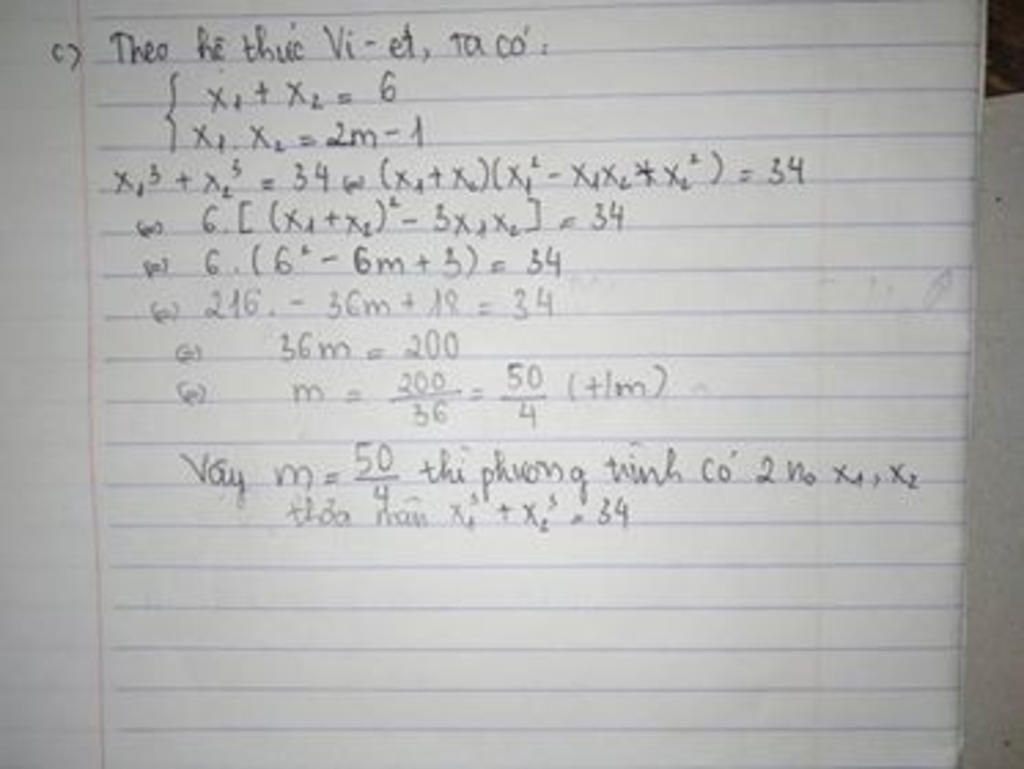 c) Theo hê thức Vi-et, ta có:
{ x₁ + x₂ = 6
x₁. x₂ = 2m - 1
x₁³ + x₂³ = 34 ⇔ (x₁+x₂)(x₁² - x₁x₂ + x₂²) = 34
⇔ 6.[(x₁+x₂)² - 3x₁x₂] = 34
⇔ 6.(6² - 6m + 3) = 34
⇔ 216. - 36m + 18 = 34
⇔ 36m = 200
⇔ m = 200/36 = 50/4 (t/m)
Vây m = 50/4 thì phương trình có 2 n₀ x₁, x₂
thỏa mãn x₁³ + x₂³ = 34